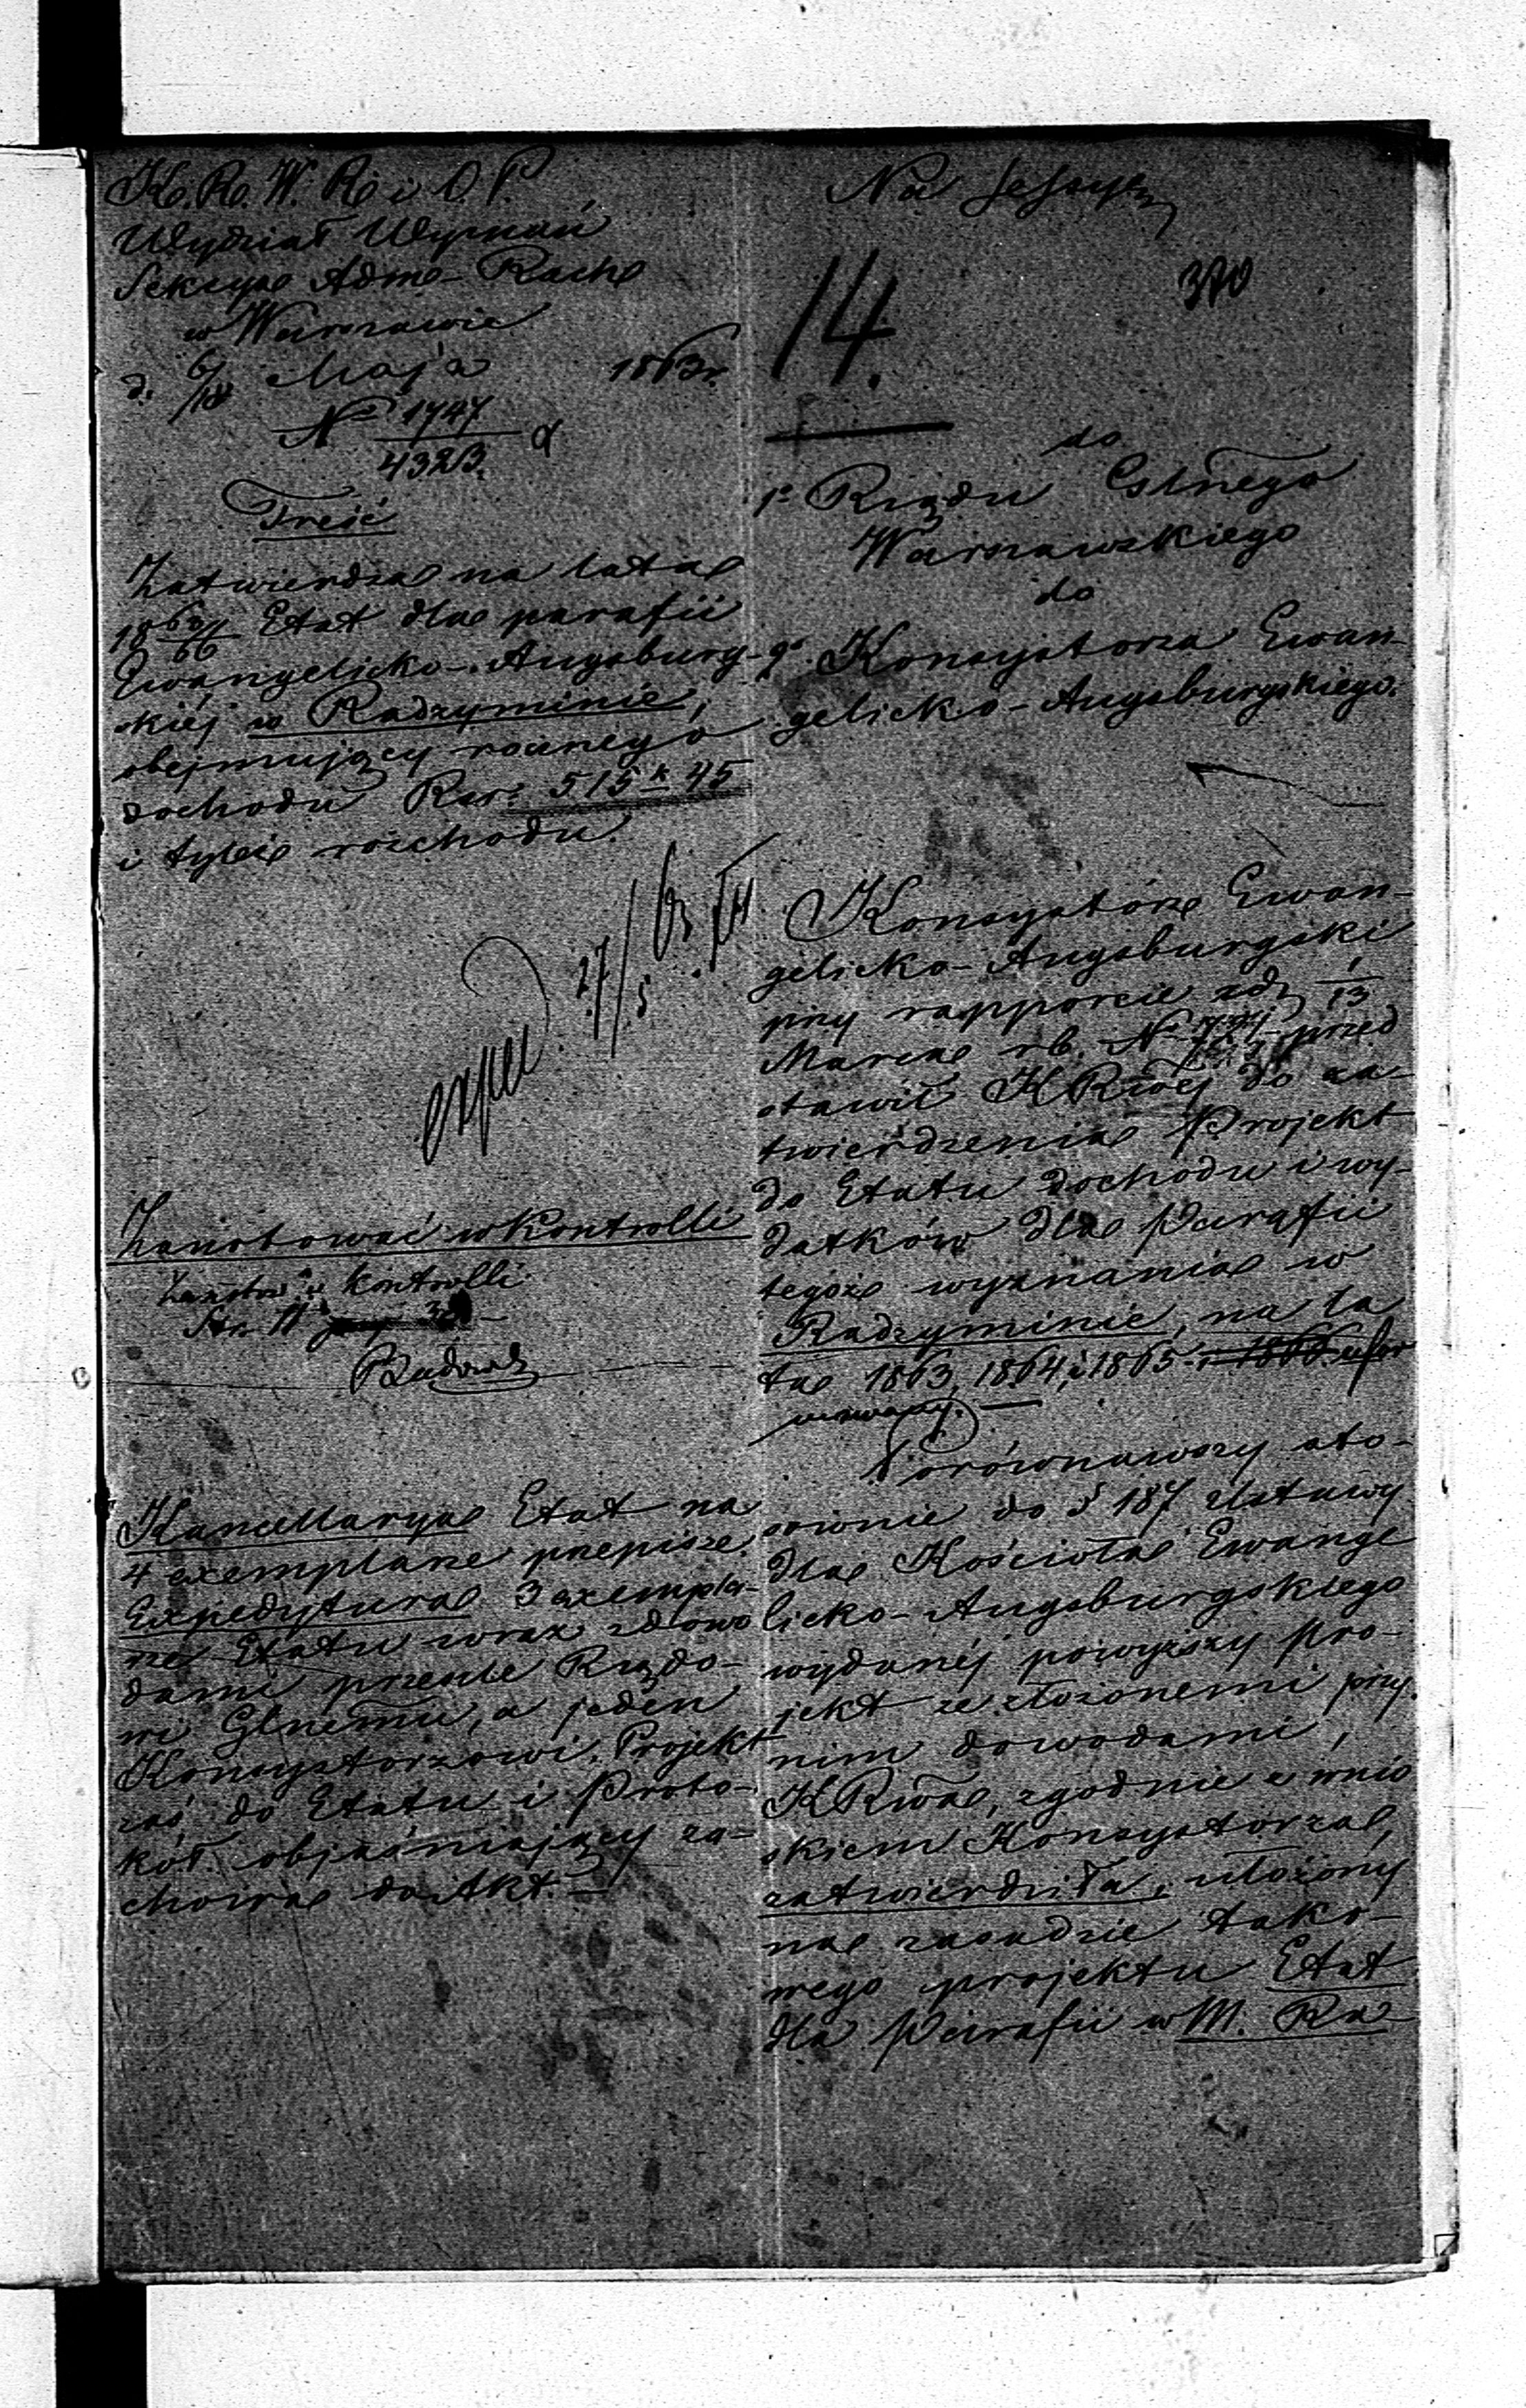 K. R. W. R. i O. P.
Wydział Wyznań
Sekcya Adm-Rach
w Warszawie
d. 6/18 Maja 1863 r.
No 1747/4323
Treść
Zatwierdza na lata
1863/66 Etat dla parafii
Ewangelicko-Augsburg-
skiéj w Radzyminie,
obejmujący rocznego
dochodu Rsr. 515 k 45
i tyleż rozchodu.
exped. 27/5 63
Zanotować w Kontrolli
Kontrolli
Kancellarya Etat na
4 exemplarze przepisze.
Expedytura 3 exempla-
rze Etatu wraz z dowo
dami prześle Rządo-
wi Glnemu, a jeden
Konsystorzowi. Projekt
zaś do Etatu i Proto-
kół objaśniający za-
chowa do Akt.
Na Sessyę
370
14.
do
1o Rządu Gslnego
Warszawskiego
do
2o Konsystorza Ewan-
gelicko-Augsburgskiego.
Konsystorz Ewan-
gelicko-Augsburgski
przy rapporcie z d. 1/13
Marca rb. No przed
stawił KRwéj do za-
twierdzenia Projekt
do Etatu dochodu i wy-
datków dla Parafii
tegoż wyznania w
Radzyminie, na la
ta 1863, 1864, i 1865 i 1866 ufor
mowany.
Porównawszy sto-
sownie do § 187 Ustawy
dla Kościoła Ewange
licko-Augsburgskiego
wydanéj powyższy pro-
jekt ze złożonemi przy
nim dowodami,
KRwa, zgodnie z wnio
skiem Konsystorza,
zatwierdziła, ułożony
na zasadzie tako-
wego projektu Etat
dla Parafii w M. Ra-